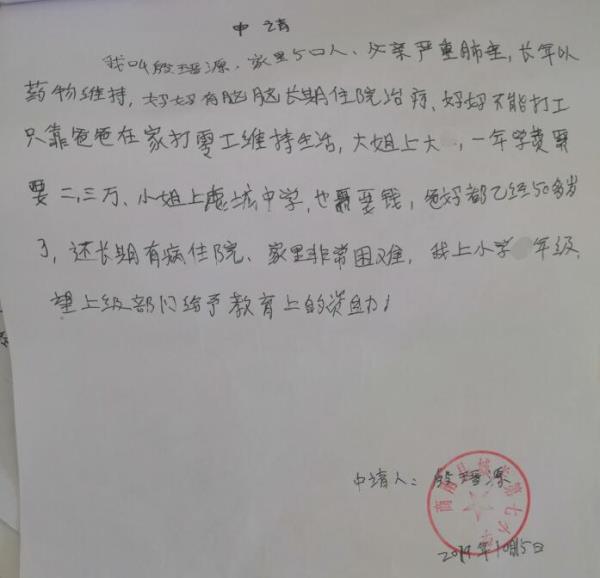 申请
我叫殷瑨源、家里5口人、父亲严重肺尘,长年以
药物维持,妈妈有脑长期住院治疗、妈妈不能打工
只靠爸爸在家打零工维持生活,大姐上大,一年学费需
要二,三万、小姐上虞城中学,也需要钱,爸妈都已经50多岁
了,还长期有病住院、家里非常困难,我上小学年级,
望上级部门给予教育上的资助!
申请人:殷源
商县第七小
2019年10月5日